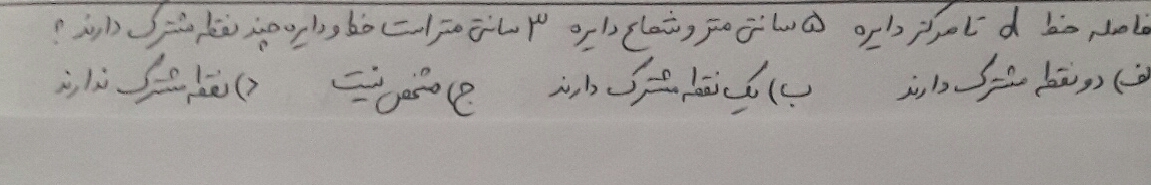 فاصله خط d تا مرکز دایره ۵ سانتی متر و شعاع دایره ۳ سانتی متر است خط و دایره چند نقطه مشترک دارند ؟
لف) دو نقطه مشترک دارند ب) یک نقطه مشترک دارند ج) مشخص نیست د) نقطه مشترک ندارند